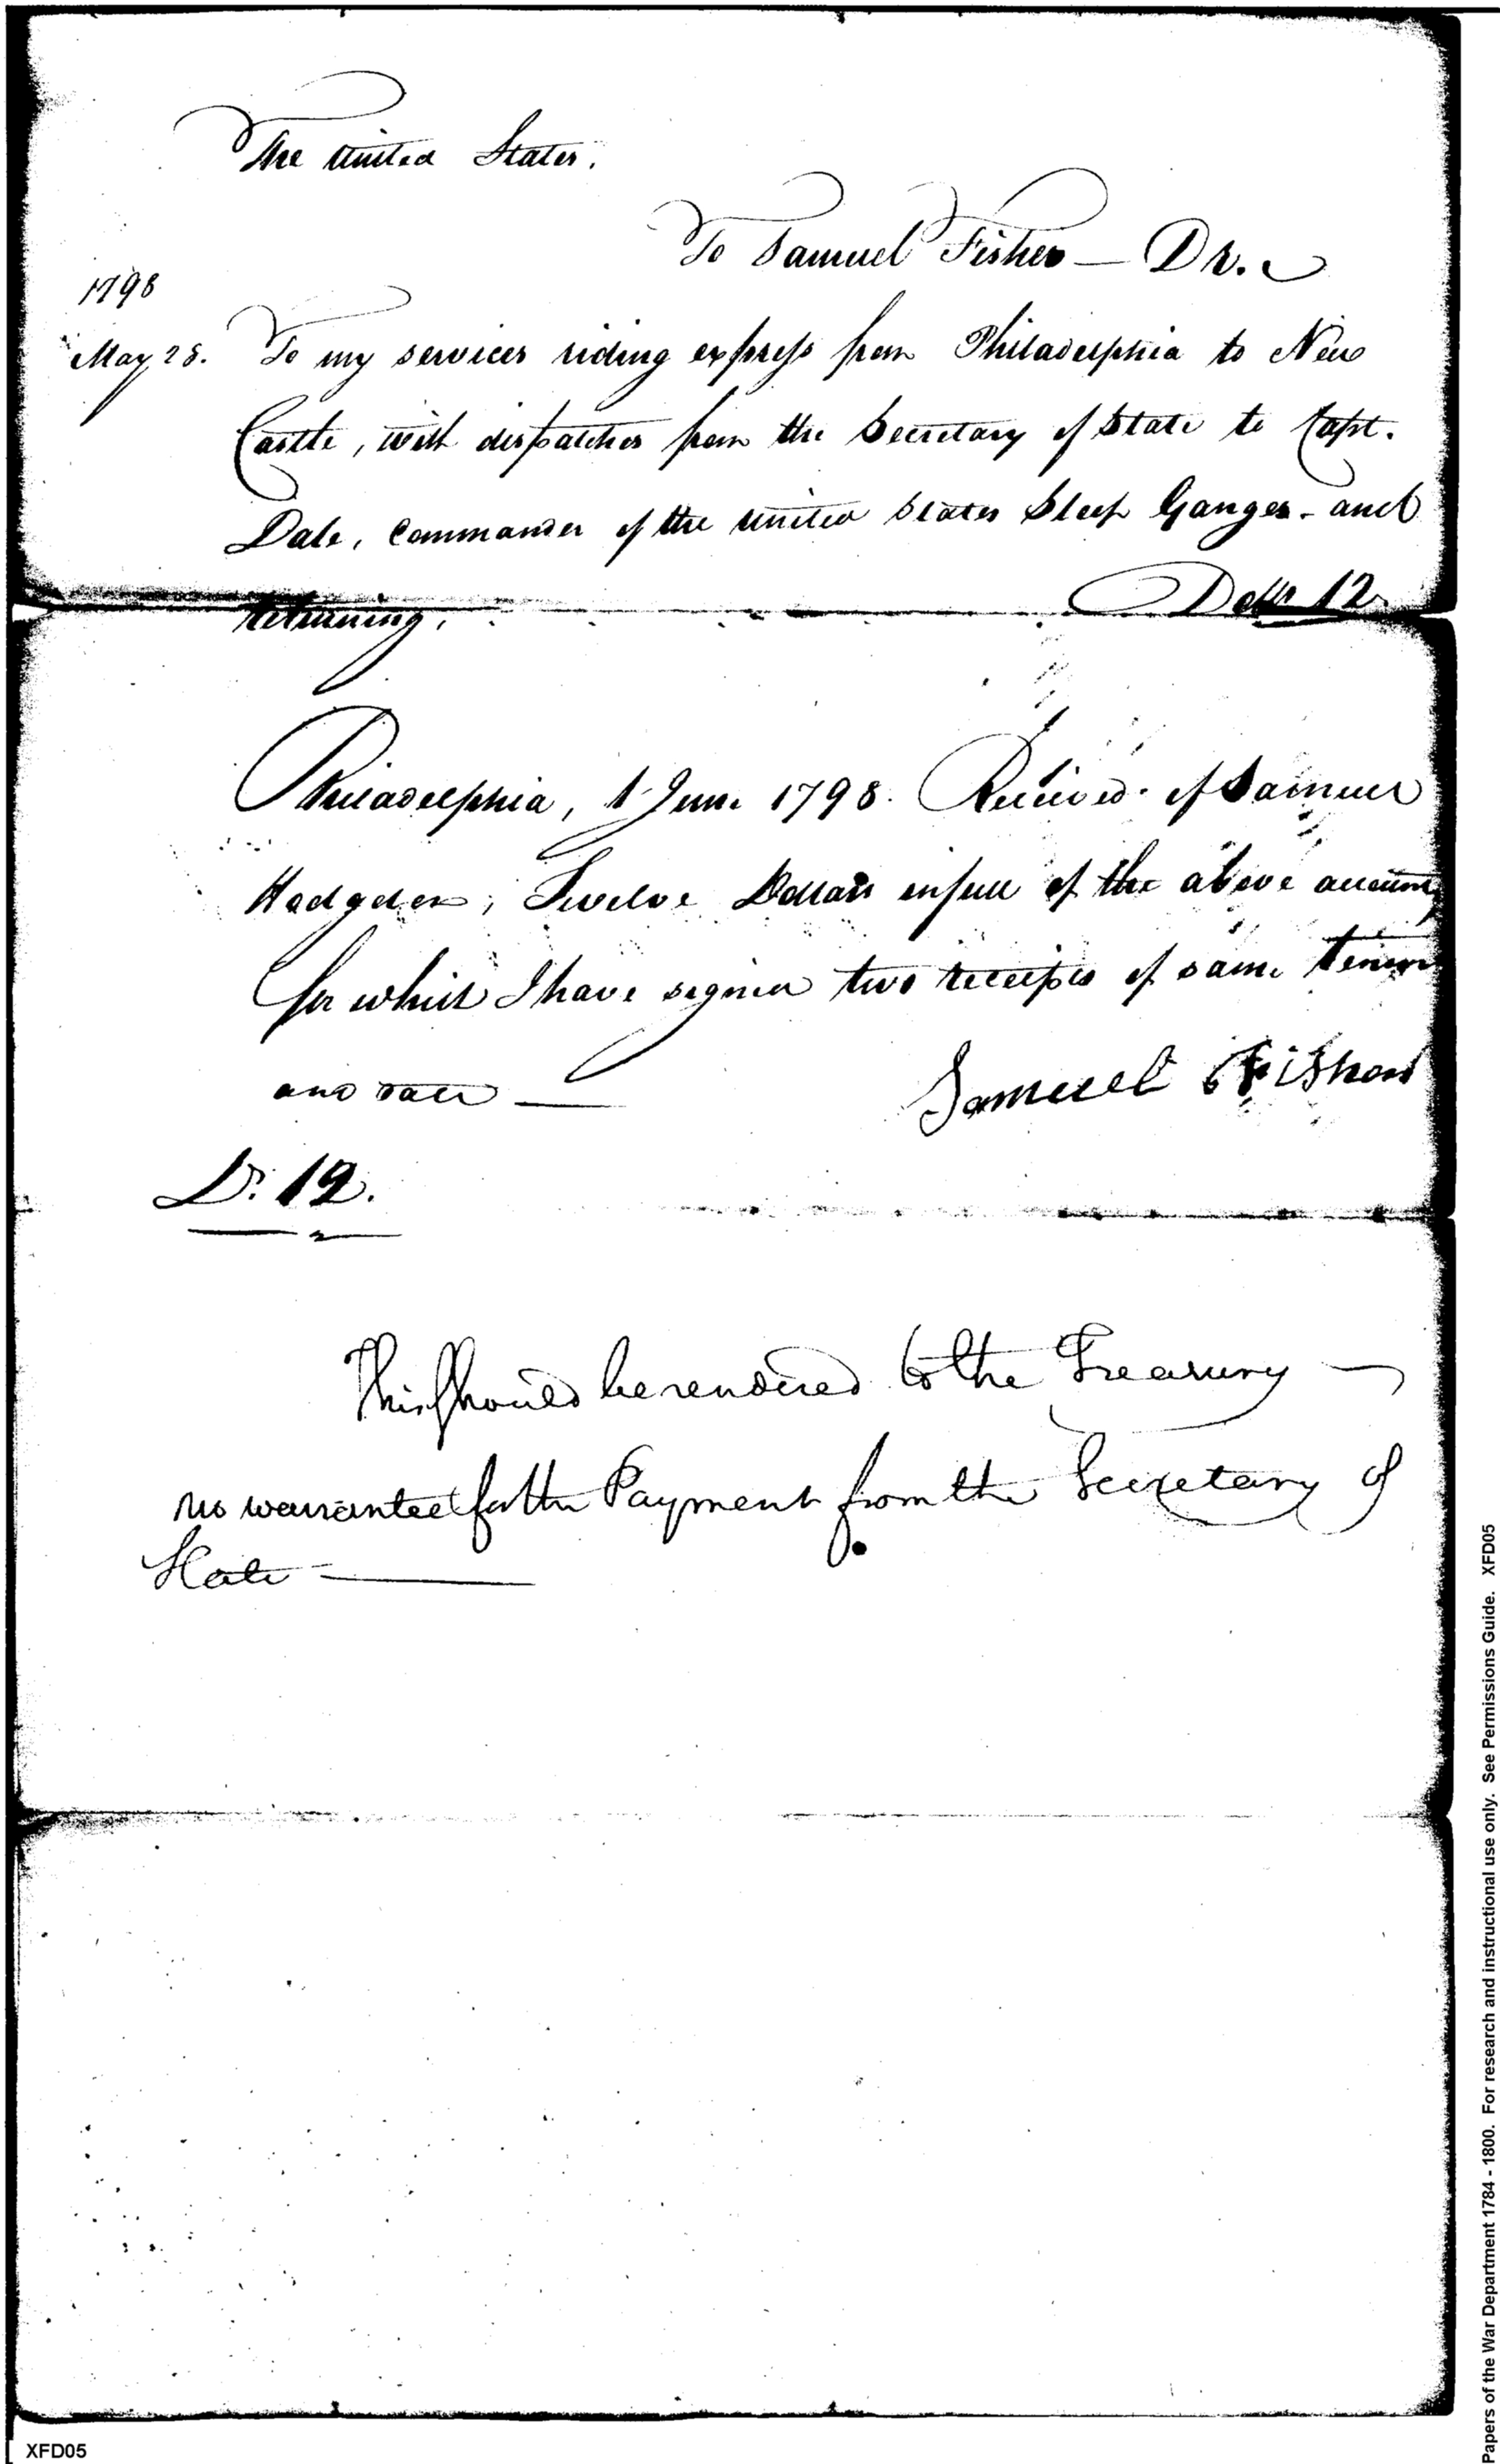 The United States.
To Samuel Fisher — Dr.
1798
May 28. To my services riding express from Philadelphia to New
Castle, with dispatches from the Secretary of State to Capt.
Dale, Commander of the United States Sloop Ganges - and
returning.
Dolls 12
Philadelphia, 1 June 1798. Received of Samuel
Hodgdon, Twelve Dollars in full of the above account
for which I have signed two receipts of same tenor
and date —
Samuel Fisher
Dr. 12.
This should be rendered to the Treasury —
no warrantee for the Payment from the Secretary of
State —
Papers of the War Department 1784 - 1800. For research and instructional use only. See Permissions Guide. XFD05
XFD05